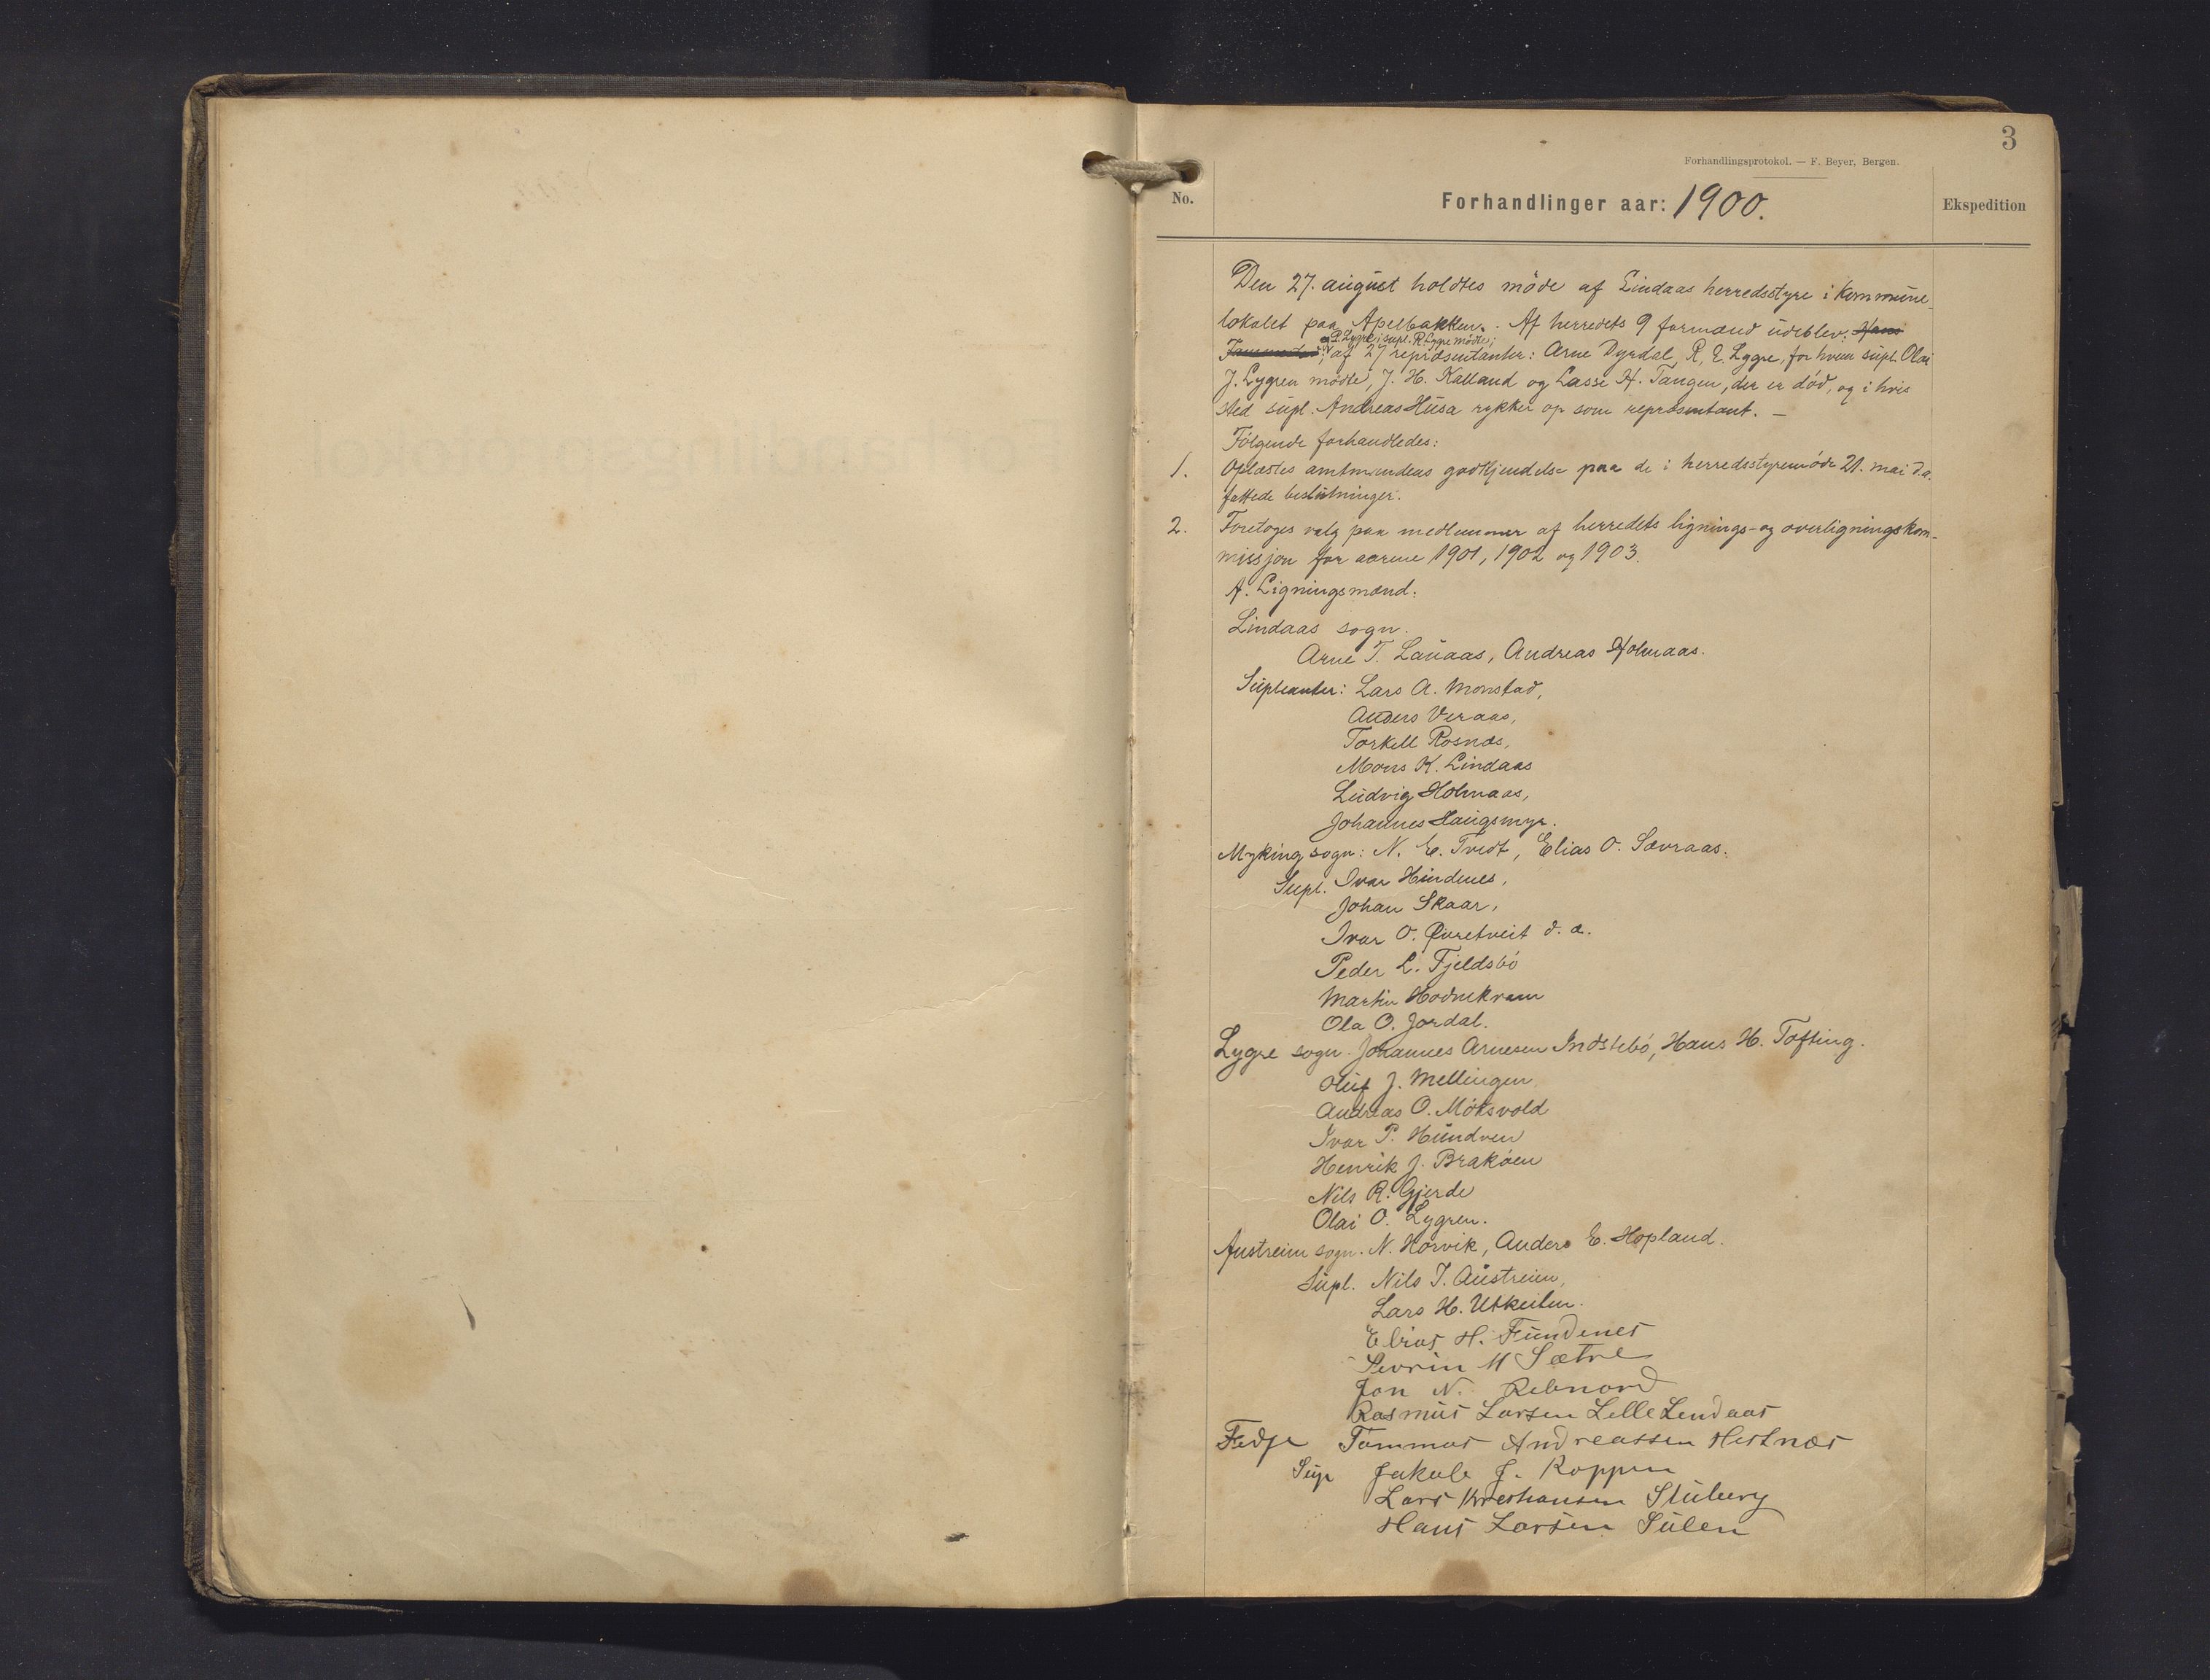 3
Forhandlingsprotokol. — F. Beyer, Bergen.
No.
Forhandlinger aar: 1900.
Ekspedition
Den 27. august holdtes möde af Lindaas herredsstyre i kommune-
lokalet paa Apelbakken. Af herredets 9 formænd udeblev: Hans
P. Lygre; supl. R. Lygre mödte;
af 27 repræsentanter: Arne Dyrdal, R. E. Lygre, for hvem supl. Olai
J. Lygren mödte, J. H. Kalland og Lasse H. Tangen, der er död, og i hvis
sted supl. Andreas Husa rykker op som repræsentant. —
Fölgende forhandledes:
1. Oplæstes amtmandens godkjendelse paa de i herredsstyremöde 21. mai d.a.
fattede beslutninger.
2. Foretoges valg paa medlemmer af herredets lignings- og overligningskom-
missjon for aarene 1901, 1902 og 1903.
A. Ligningsmænd:
Lindaas sogn.
Arne T. Lauaas, Andreas Holmaas.
Supleanter: Lars A. Monstad,
Anders Veraas,
Torkell Rosnæs,
Mons K. Lindaas
Ludvig Holmaas,
Johannes Haugsmyr.
Myking sogn: N. E. Tvedt, Elias O. Sævraas.
Supl. Ivar Hindenes,
Johan Skaar,
Ivar O. Øvretveit d. æ.
Peder L. Fjeldsbö
Martin Hodnekvam
Ola O. Jordal.
Lygre sogn. Johannes Arnesen Indstebö, Hans H. Tofting.
Oluf J. Mellingen
Andreas O. Möksvold
Ivar P. Hundven
Henrik J. Braköen
Nils R. Gjerde
Olai O. Lygren.
Austreim sogn. N. Horvik, Anders E. Hopland.
Supl. Nils T. Austreim,
Lars H. Utkeilen.
Elias H. Fundenes
Sevrin M Sætre
Jon N. Rebnord
Rasmus Larsen Lille Lindaas
Fedje Tommas Andreassen Hestnæs
Sup Jakob J. Koppen
Lars Kristiansen Stuberg
Hans Larsen Sulen